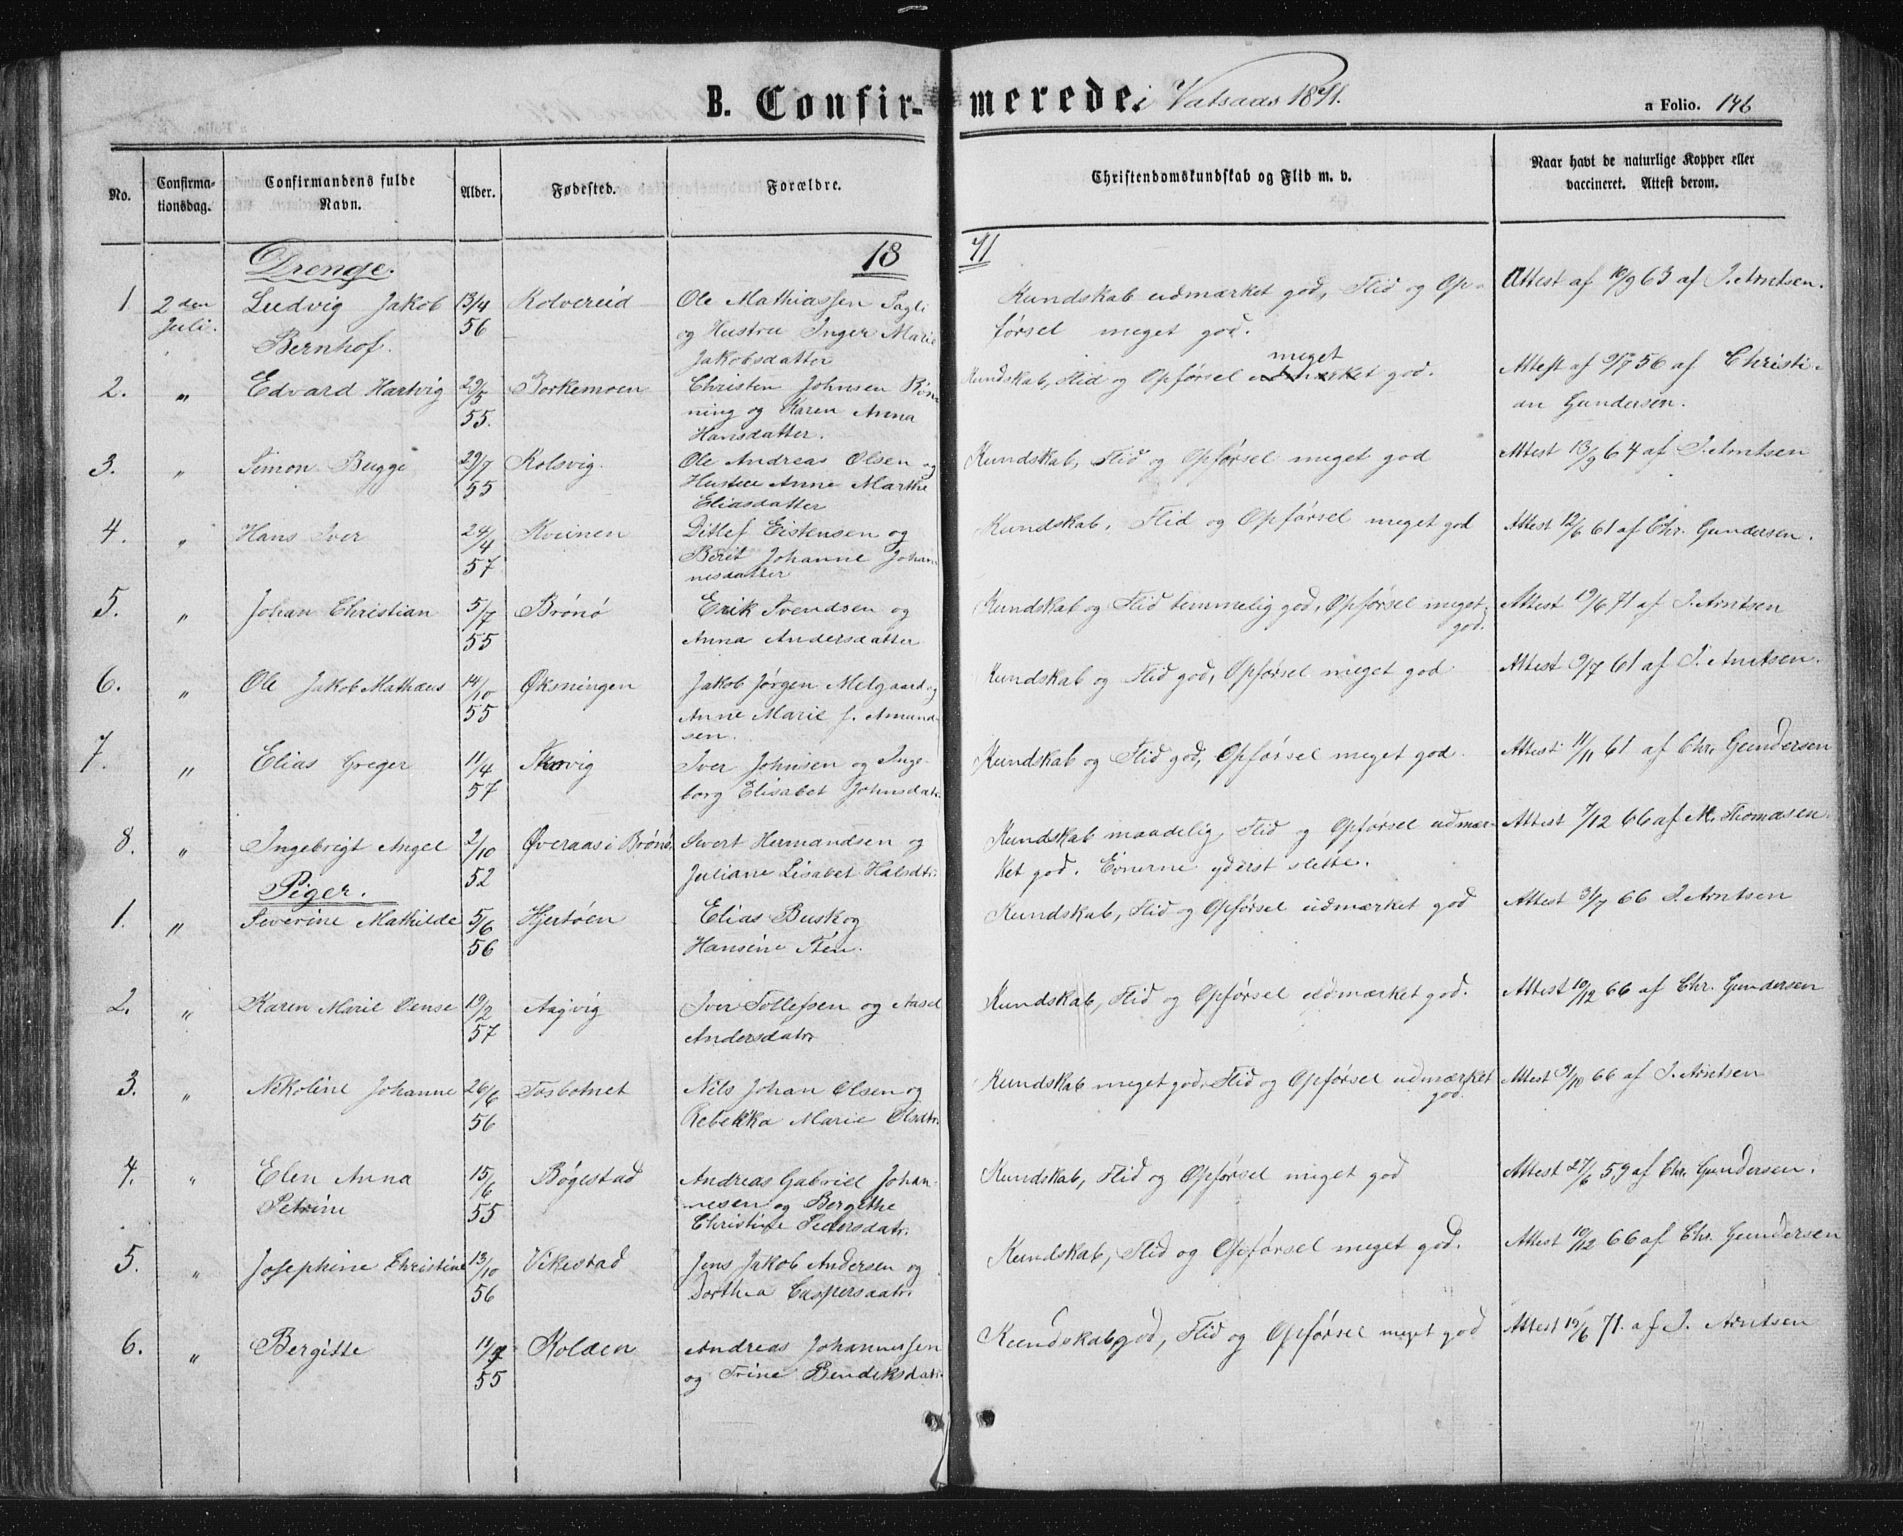 B. Confirmerede i Vatsaas 1871.
a Folio. 146
No.
Confirmationsdag.
Confirmandens fulde Navn.
Alder.
Fødested.
Forældre.
Christendomskundskab og Flid m. v.
Naar havt de naturlige Kopper eller vaccineret. Attest derom.
Drenge.
18 71
1. 2den Juli. Ludvig Jakob Bernhof. 13/4 56 Kolvereid Ole Mathiassen Fagli og Hustru Inger Marie Jakobsdatter Kundskab udmærket god, Flid og Opførsel meget god. Attest af 10/9 63 af J. Arntsen.
2. " Edvard Hartvig 29/5 55. Borkemoen Christen Johnsen Rønning og Karen Anna Hansdatter. Kundskab, Flid og Opførsel udmærket meget god. Attest af 9/7 56 af Christian Gundersen.
3. " Simon Bugge 29/7 55 Kolsvig. Ole Andreas Olsen og Hustru Anne Marthe Eliasdatter Kundskab, Flid og Opførsel meget god Attest 13/9 64 af J. Arntsen
4. " Hans Iver 24/4 57 Kvinen Ditlef Eistensen og Berit Johanne Johannesdatter Kundskab, Flid og Opførsel meget god Attest 12/6 61 af Chr. Gundersen.
5. " Johan Christian 5/7 55 Brønø Erik Svendsen og Anna Andersdatter Kundskab og Flid temmelig god, Opførsel meget god. Attest 19/6 71 af J. Arntsen
6. " Ole Jakob Mathæus 14/10 55 Øksningen Jakob Jørgen Melgaard og Anne Marie f. Amundsen. Kundskab og Flid god, Opførsel meget god Attest 9/7 61 af J. Arntsen.
7. " Elias Greger 11/4 57 Iver Johnsen og Ingeborg Elisabet Johnsdatr. Kundskab og Flid god, Opførsel meget god Attest 11/11 61 af Chr. Gundersen
8. " Ingebrigt Angel 2/10 52 Øveraas i Brønø. Sivert Hermandsen og Juliane Lisabet Halsdtr. Kundskab maadelig, Flid og Opførsel udmærket god. Evnerne yderst slette. Attest 7/12 66 af M. Thomasen.
Piger.
1. " Severine Mathilde 5/6 56 Hjertøen Elias Busk og Hansine Steen. Kundskab, Flid og Opførsel udmærket god Attest 31/7 66 J. Arntsen
2. " Karen Marie Oense 19/2 57 Aagvig Iver Tollefsen og Aasel Andersdatr Kundskab, Flid og Opførsel udmærket god. Attest 10/12 66 af Chr. Gundersen
3. " Nikoline Johanne 26/6 56 Tosbotnet Nils Johan Olsen og Rebekka Marie Olsdtr. Kundskab meget god, Flid og Opførsel udmærket god. Attest 9/10 66 af J. Arntsen
4. " Elen Anna Petrine 15/6 55 Bøgestad Andreas Gabriel Johannesen og Bergithe Christine Pedersdatr. Kundskab, Flid og Opførsel meget god Attest 27/6 59 af Chr. Gundersen.
5. " Josephine Christine 13/10 56 Vikestad Jens Jakob Andersen og Dorthea Caspersdatr. Kundskab, Flid og Opførsel meget god. Attest 10/12 66 af Chr. Gundersen
6. " Bergitte 11/9 55 Kolden Andreas Johannessen og Trine Bendiksdatr. Kundskab god, Flid og Opførsel meget god Attest 19/6 71. af J. Arntsen